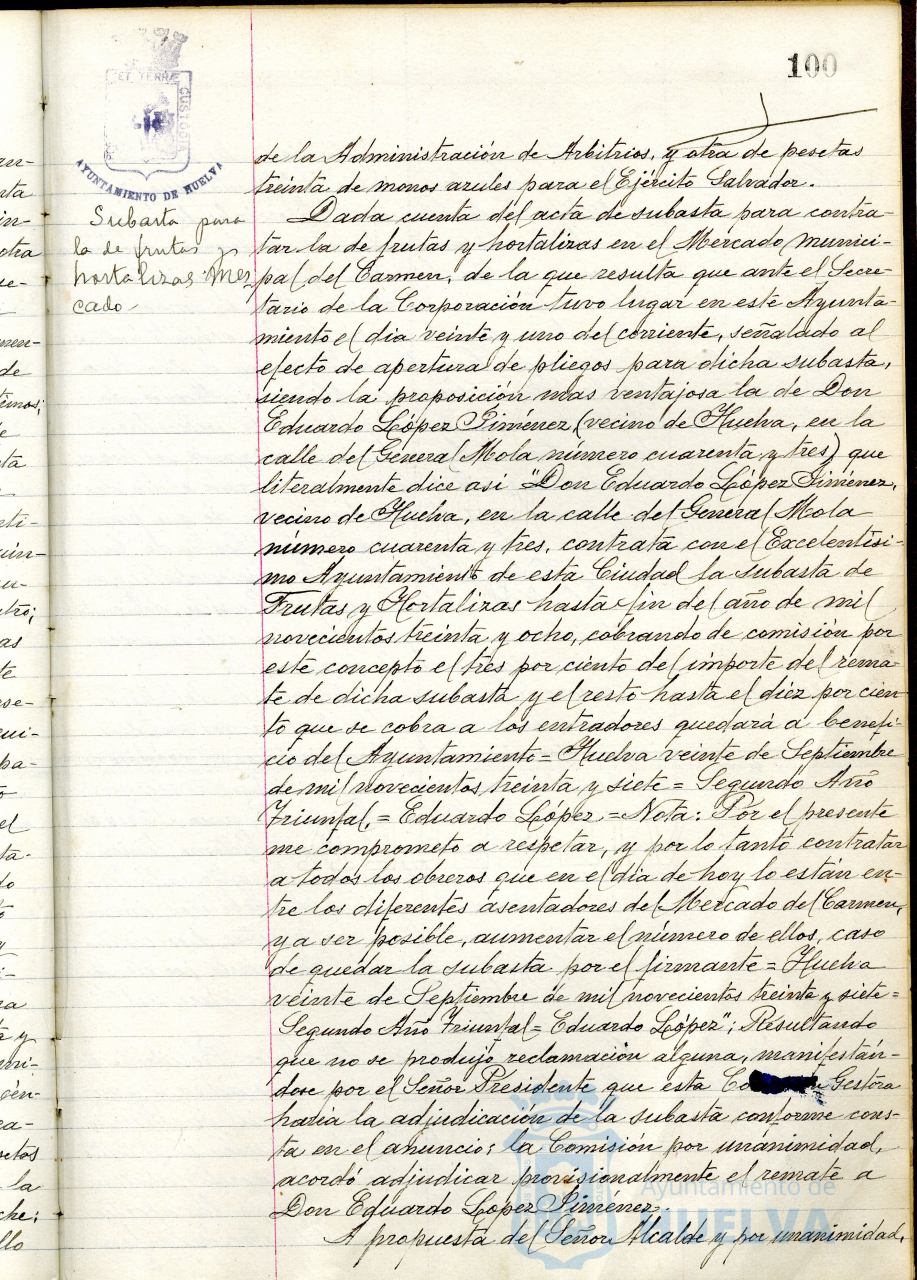 100
ET TERRÆ
CUSTODIA
AYUNTAMIENTO DE HUELVA
Subasta para
la de frutas y
hortalizas Mer-
cado
de la Administración de Arbitrios, y otra de pesetas
treinta de monos azules para el Ejército Salvador.
Dada cuenta del acta de subasta para contra-
tar la de frutas y hortalizas en el Mercado munici-
pal del Carmen, de la que resulta que ante el Secre-
tario de la Corporación tuvo lugar en este Ayunta-
miento el dia veinte y uno del corriente, señalado al
efecto de apertura de pliegos para dicha subasta,
siendo la proposición mas ventajosa la de Don
Eduardo López Jiménez, (vecino de Huelva, en la
calle del General Mola número cuarenta y tres) que
literalmente dice asi "Don Eduardo López Jiménez,
vecino de Huelva, en la calle del General Mola
número cuarenta y tres, contrata con el Excelentisi-
mo Ayuntamiento de esta Ciudad la subasta de
Frutas y Hortalizas hasta fin del año de mil
novecientos treinta y ocho, cobrando de comisión por
este concepto el tres por ciento del importe del rema-
te de dicha subasta y el resto hasta el diez por cien-
to que se cobra a los entradores quedará a benefi-
cio del Ayuntamiento = Huelva veinte de Septiembre
de mil novecientos treinta y siete = Segundo Año
Triunfal. = Eduardo López = Nota: Por el presente
me comprometo a respetar, y por lo tanto contratar
a todos los obreros que en el dia de hoy lo están en-
tre los diferentes asentadores del Mercado del Carmen,
y a ser posible, aumentar el número de ellos, caso
de quedar la subasta por el firmante = Huelva
veinte de Septiembre de mil novecientos treinta y siete =
Segundo Año Triunfal = Eduardo López"; Resultando
que no se produjo reclamación alguna, manifestán-
dose por el Señor Presidente que esta Gestora
haria la adjudicación de la subasta conforme cons-
ta en el anuncio; la Comisión por unánimidad,
acordó adjudicar provisionalmente el remate a
Don Eduardo López Jiménez.
A propuesta del Señor Alcalde y por unanimidad,
Ayuntamiento de
HUELVA